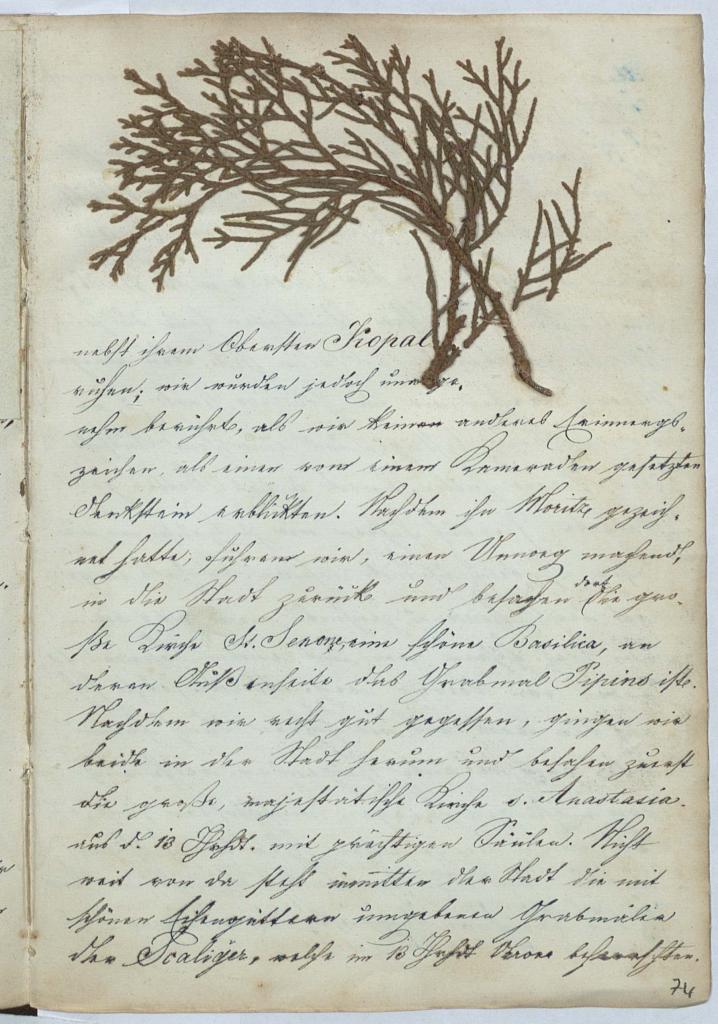 nebst ihrem Obersten Kopal
ruhen; wir wurden jedoch unange-
nehm berührt, als wir keinen anderes Erinnergs-
zeichen, als einen von einem Kameraden gesetzten
Denkstein erblickten. Nachdem ihn Moritz gezeich-
net hatte, fuhren wir, einen Umweg machend,
in die Stadt zurück und besahen dort die gro-
ße Kirche St. Zenone, eine schöne Basilica, an
deren Außenseite das Grabmal Pipins ist.
Nachdem wir recht gut gegessen, gingen wir
beide in der Stadt herum und besahen zuerst
die große, majestätische Kirche s. Anastasia
aus d. 13 Jhrhdt. mit prächtigen Säulen. Nicht
weit von da steht inmitten der Stadt die mit
schönen Eisengittern umgebenen Grabmäler
der Scaliger, welche im 13 Jhrhdt Verona beherrschten.
74